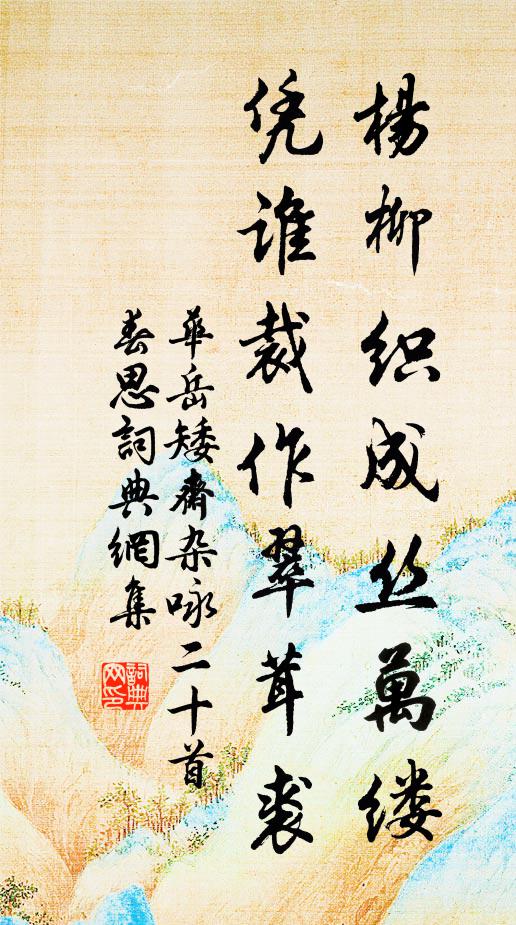 楊柳织成丝萬缕
凭谁裁作翠茸裘
華岳矮齋杂咏二十首
春思詞典網集
詞典网印